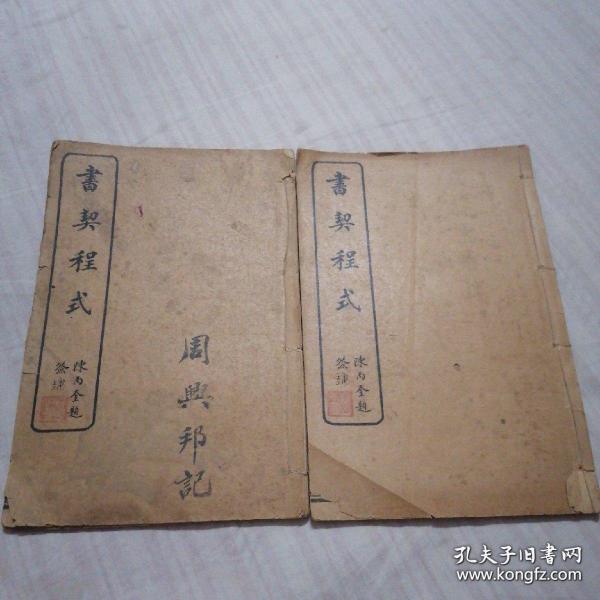 書契程式
陳丙奎題
周興邦記
書契程式
陳丙奎題
孔夫子旧书网
www.kongfz.com